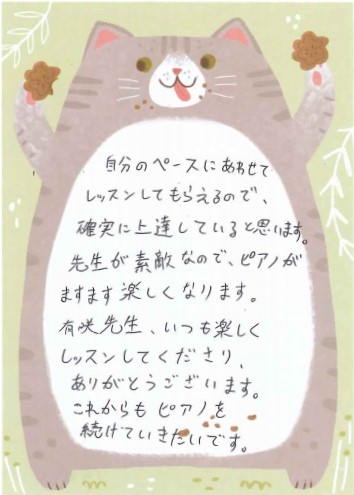 自分のペースにあわせて
レッスンしてもらえるので、
確実に上達していると思います。
先生が素敵なので、ピアノが
ますます楽しくなります。
有咲先生、いつも楽しく
レッスンしてくださり、
ありがとうございます。
これからもピアノを
続けていきたいです。